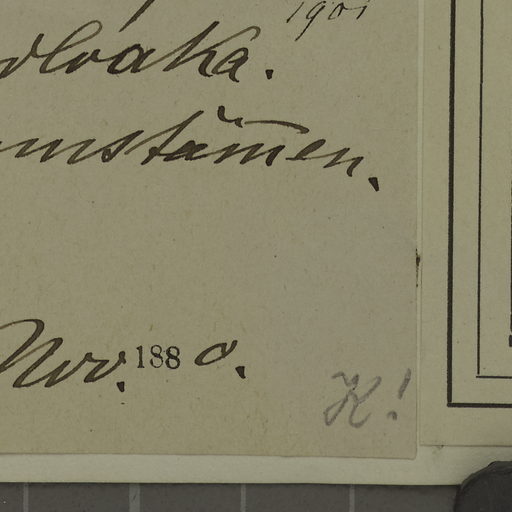 1901
dloaka.
umstämen.
Nov. 1880.
K!